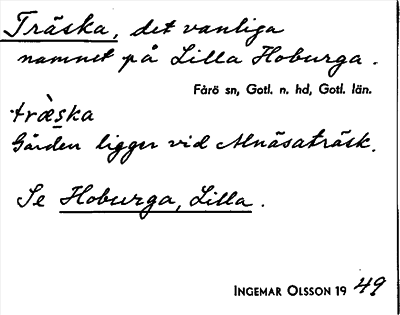 Träska, det vanliga
namnet på Lilla Hoburga.
Fårö sn, Gotl. n. hd, Gotl. län.
træ̀s̲ka
Gården ligger vid Alnäsaträsk.
Se Hoburga, Lilla.
INGEMAR OLSSON 19 49